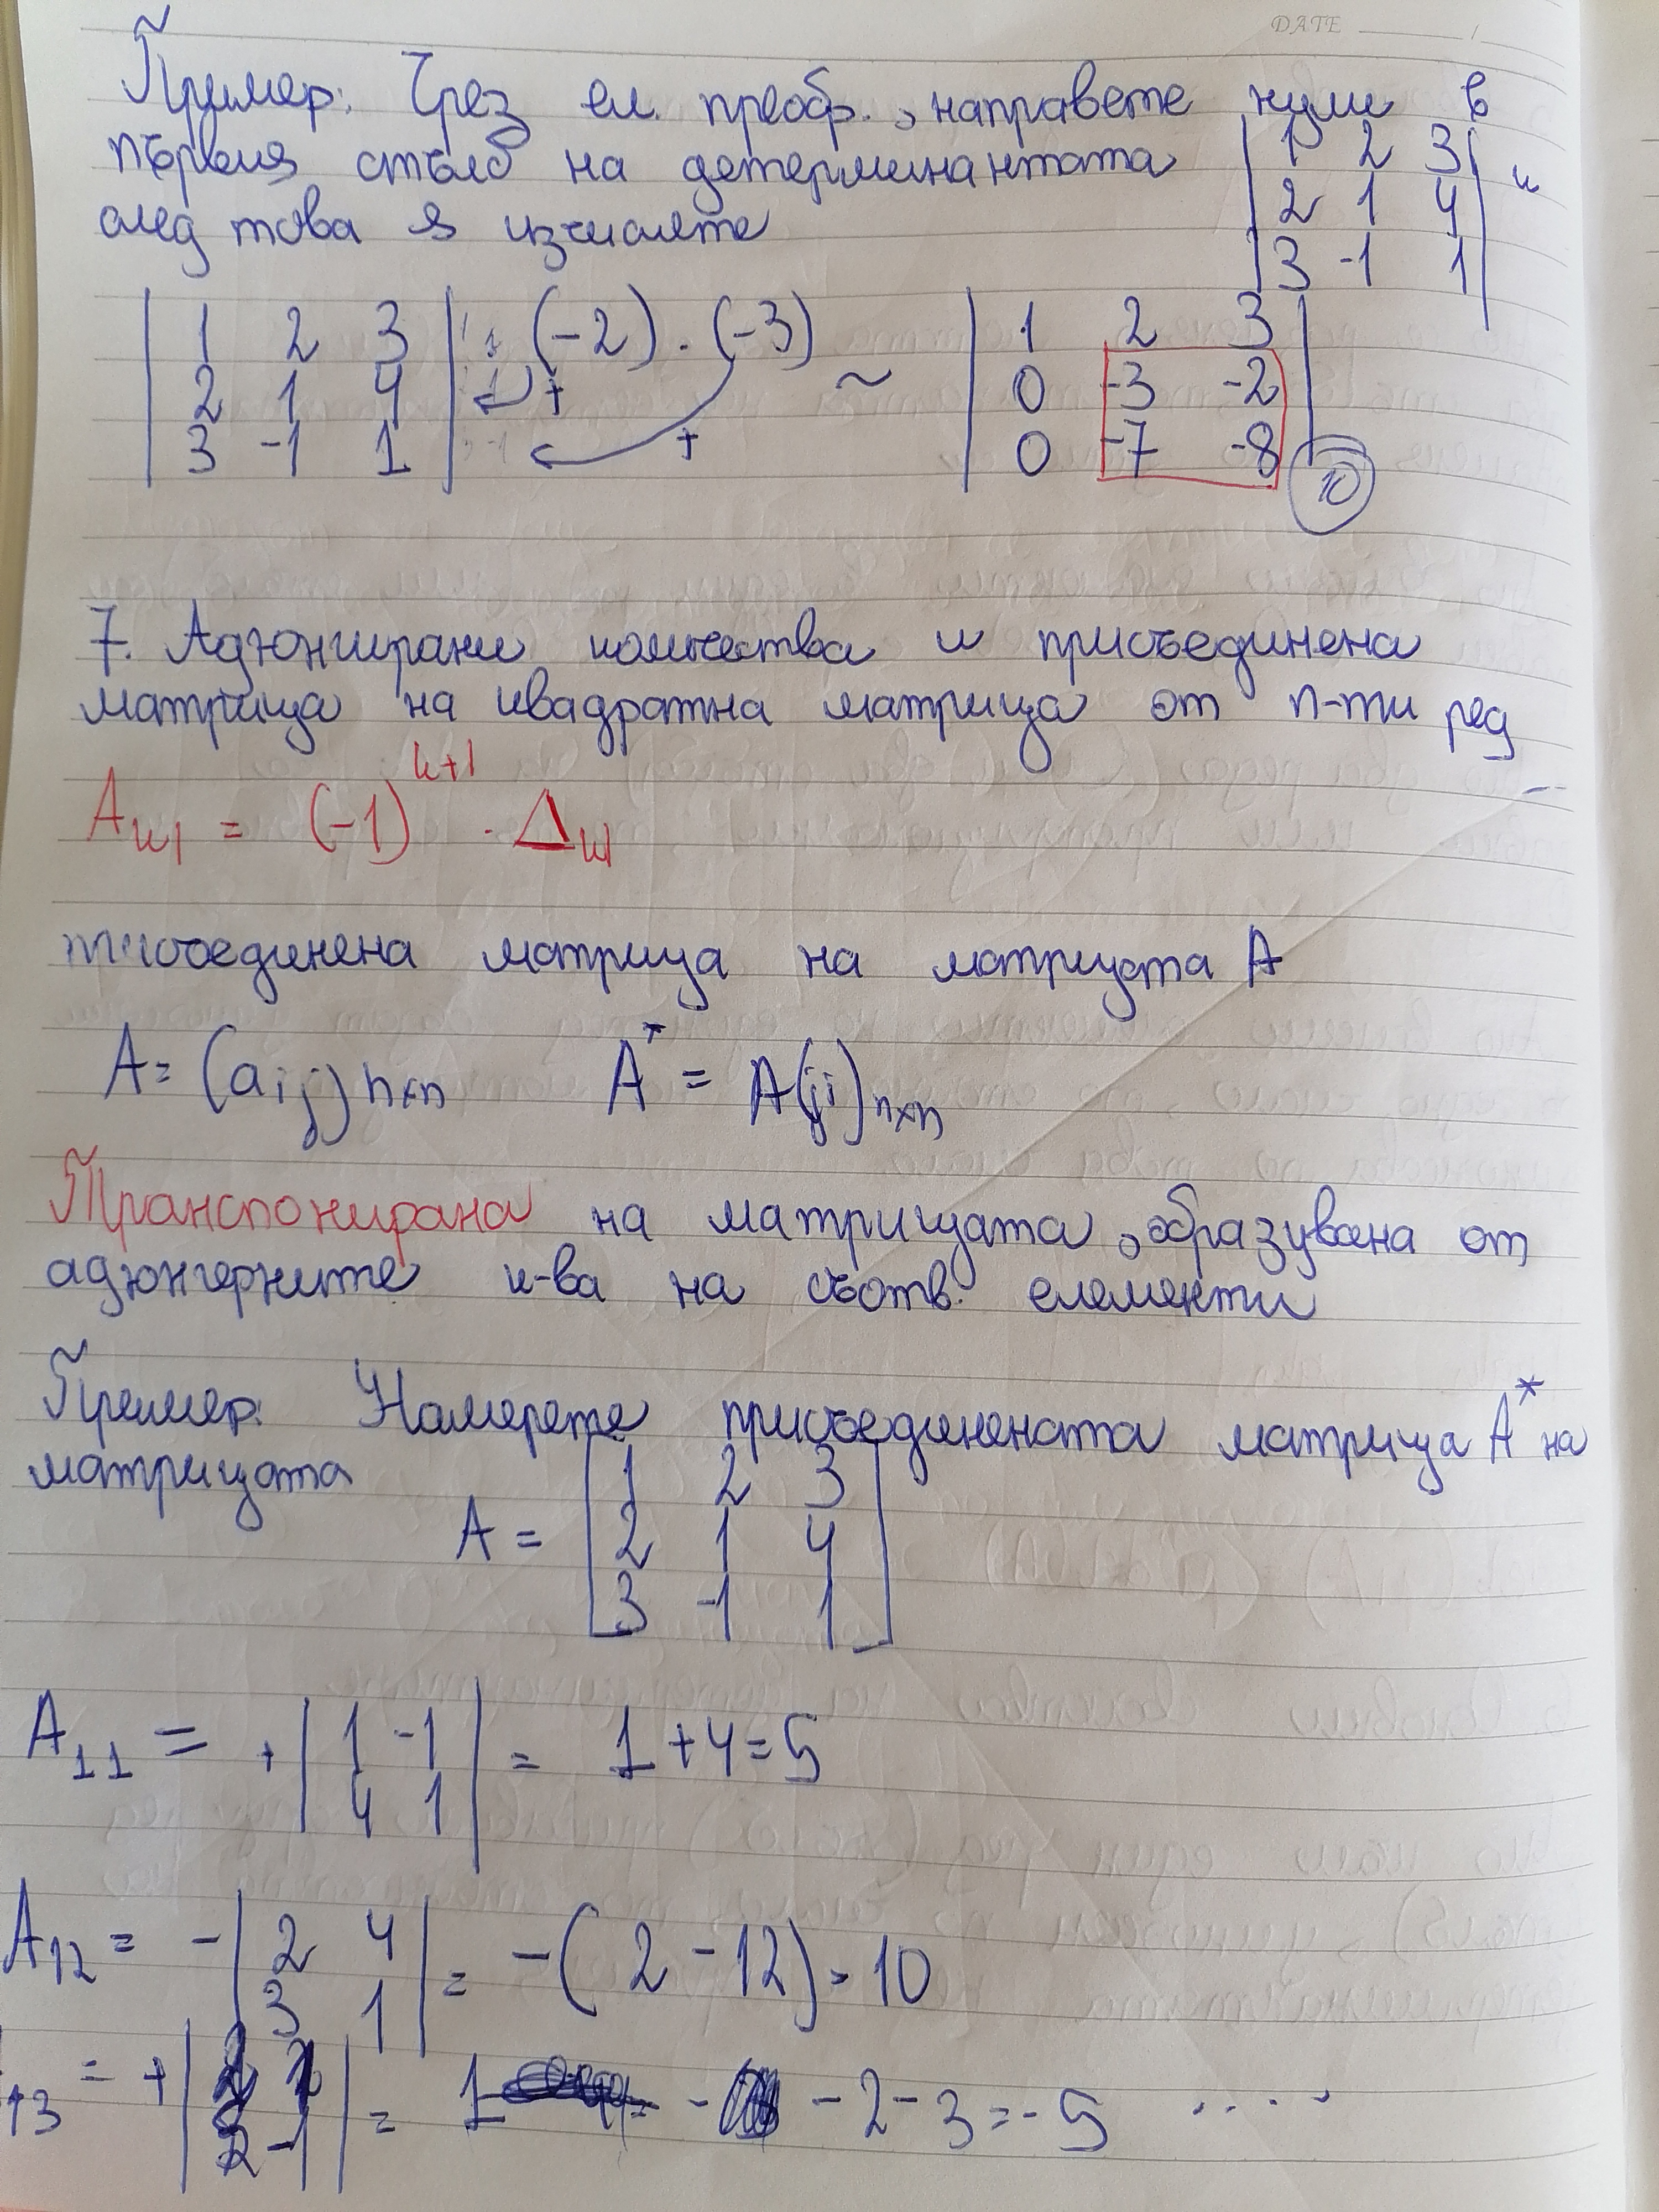 DATE
Пример: Чрез ел. преобр., направете нули в
първия стълб на детерминантата | 1 2 3 | и
след това я изчислете | 2 1 4 |
| 3 -1 1 |
| 1 2 3 | . (-2) . (-3) | 1 2 3 |
| 2 1 4 | ↵ + ~ | 0 -3 -2 |
| 3 -1 1 | ← + | 0 -7 -8 | 10
7. Адюнгирани количества и присъединена
матрица на квадратна матрица от n-ти ред
A_kl = (-1)^k+l . Δ_kl
присъединена матрица на матрицата A
A = (aij) n×n A* = A(ji) n×n
Транспонирана на матрицата, образувана от
адюнгерните к-ва на съотв. елементи
Пример: Намерете присъединената матрица A* на
матрицата
[ 1 2 3 ]
A = [ 2 1 4 ]
[ 3 -1 1 ]
A11 = + | 1 -1 | = 1 + 4 = 5
| 4 1 |
A12 = - | 2 4 | = -(2 - 12) = 10
| 3 1 |
13 = + | = 1 - 2 - 3 = - 5 ....